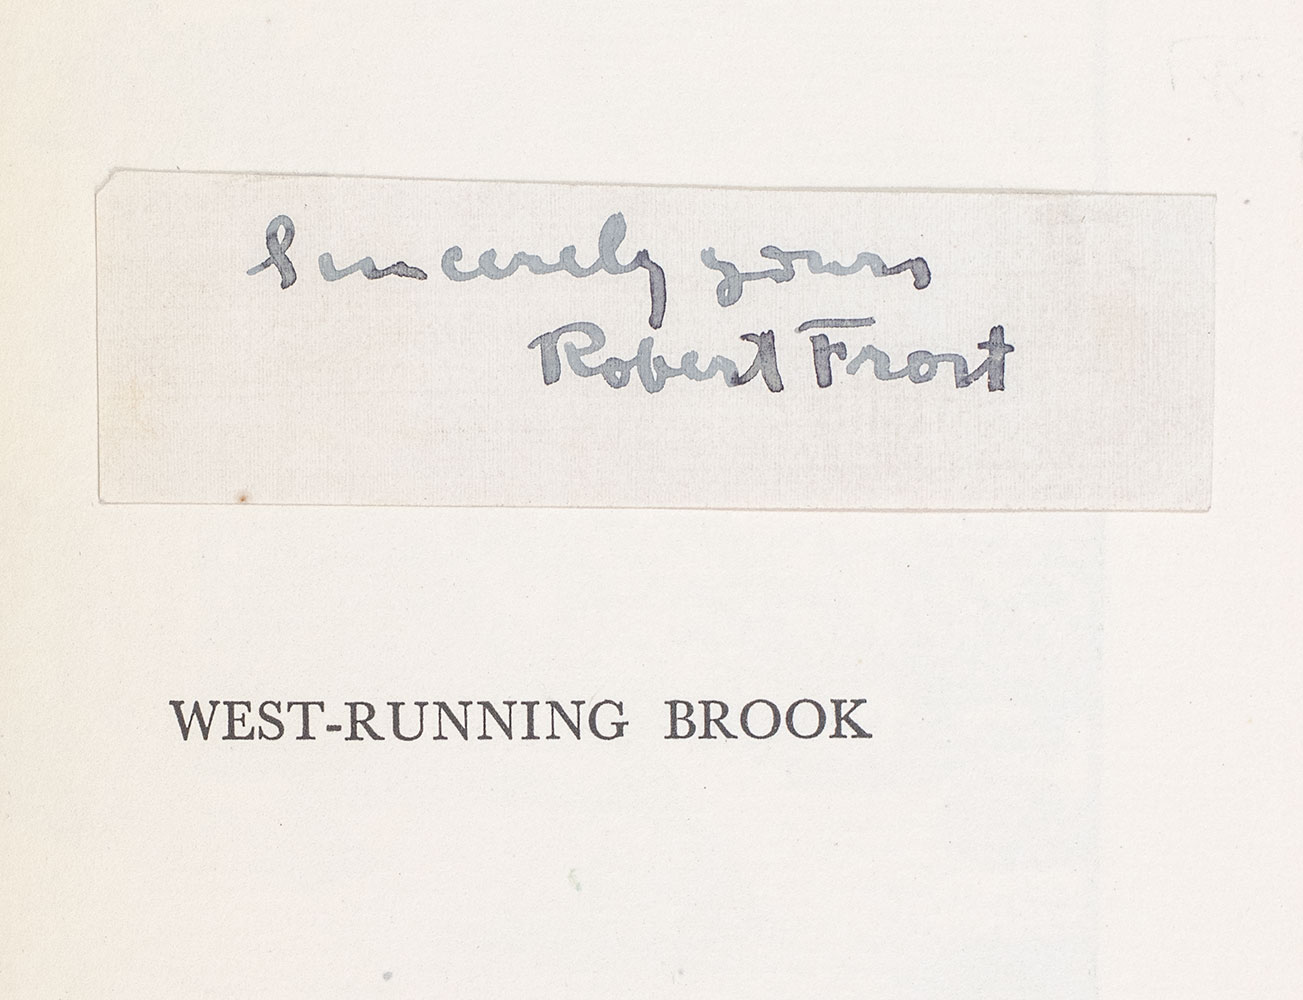 Sincerely yours
Robert Frost
WEST-RUNNING BROOK